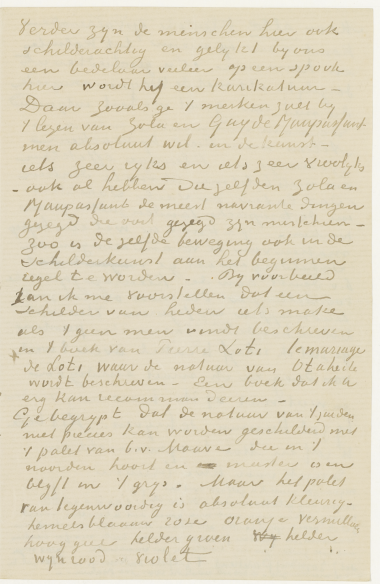 Verder zyn de menschen hier ook
schilderachtig en gelykt by ons
een bedelaar veeleer op een spook
hier wordt hy een karikatuur –
Daar zooals ge 't merken zult by
't lezen van Zola en Guy de Maupassant
men absoluut wil – in de kunst –
iets zeer ryks en iets zeer vroolyks
– ook al hebben diezelfden Zola en
Maupassant de meest navrante dingen
gezegd die ooit gezegd zyn misschien –
zoo is dezelfde beweging ook in de
schilderkunst aan het beginnen
regel te worden – . By voorbeeld
kan ik me voorstellen dat een
schilder van heden iets make
als 't geen men vindt beschreven
in 't boek van Pierre Loti le mariage
de Loti waar de natuur van Otaheite
wordt beschreven – Een boek dat ik U
erg kan recommandeeren –
Ge begrypt dat de natuur van 't zuiden
niet precies kan worden geschilderd met
't palet van b.v. Mauve die in 't
noorden hoort en meester is en
blyft in 't grys. – Maar het palet
van tegenwoordig is absoluut kleurig –
hemelsblaauw roze oranje vermillon
hoog geel helder groen helder
wynrood – violet